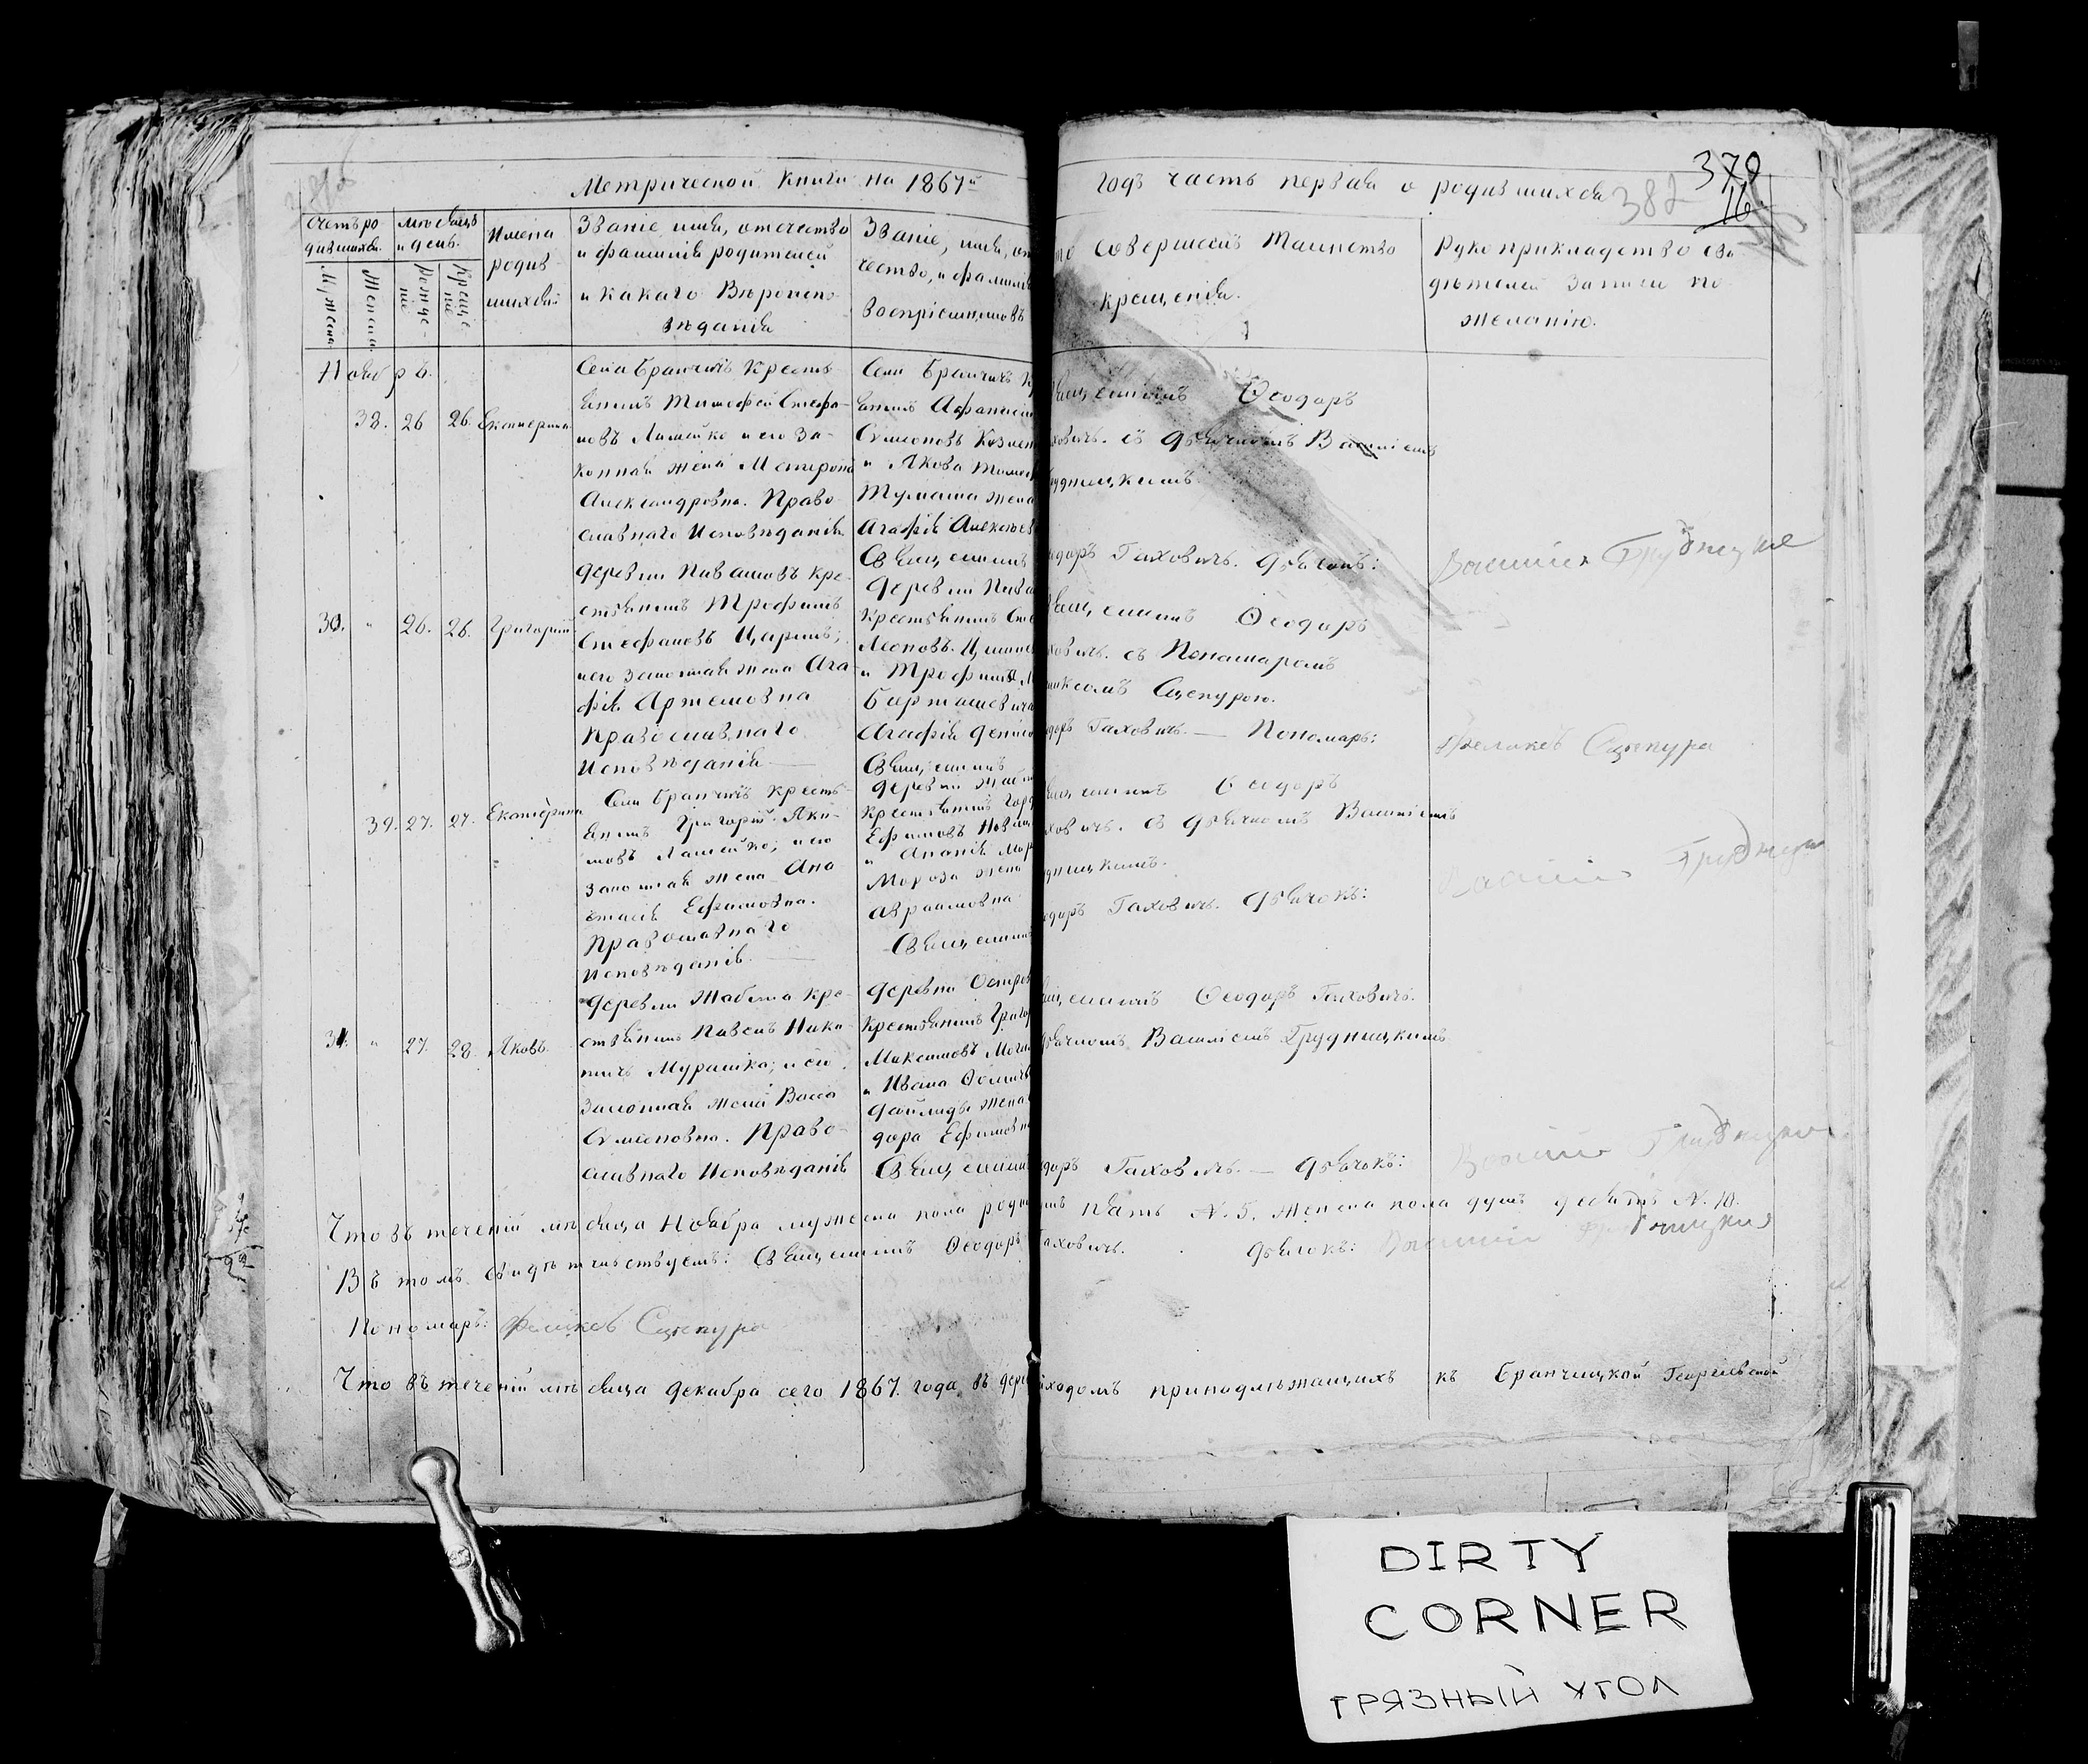 Метрической книги на 1867й
годъ часть первая о родившихся 382 370
16
Счетъ ро
дившихся.
мѣсяцъ
и день.
Имена
родив-
шихся.
Мужеска
Женска
рожде-
ніе
Креще
ніе
Званіе, имя, отечество
и фамилія родителей
и какаго Вѣроиспо-
вѣданія
Званіе, имя, от
чество, и фамилія
воспріемниковъ
то совершалъ Таинство
крещенія.
Рукоприкладство сви
дѣтелей записи по
желанію.
Ноябрь.
38. 26 26. Екатерина
Села Бранчичъ Кресть-
янинъ Тимофей Стефа-
новъ Лашейко и его за-
конная жена Матрона
Александровна. Право-
славнаго Исповѣданія
Села Бранчичъ К
янинъ Афанасій
Сѵмеоновъ
и Якова
жена
Агафія Алексѣев
Священникъ
ященникъ Ѳеодоръ
ховичъ. съ дьячкомъ Василіемъ
рудницкимъ.
одоръ Гаховичъ. Дьячокъ:
Василій Грудницкій
30. " 26. 26. Григорій
деревни Пивашовъ кре-
стьянинъ Трофимъ
Стефановъ Царикъ;
и его законная жена Ага-
фія Артемовна
Православнаго
Исповѣданія —
деревни Пива
Крестьянинъ
Леоновъ.
и Трофима
Барташевича
Агафія
Священникъ
ященникъ Ѳеодоръ
ховичъ. съ Пономаромъ
ликсомъ Сцепурою.
доръ Гаховичъ. — Пономарь:
Феликсъ Сцепура
39. 27. 27. Екатерина
Села Бранчичъ кресть-
янинъ Григорій Яки-
мовъ Лашейко; и его
законная жена Ана-
стасія Ефимовна.
Православнаго
Исповѣданія. —
деревни
Крестьянинъ
Ефимовъ
и Ананія
Мороза жена
Авраамовна
Священникъ
ященникъ Ѳеодоръ
ховичъ. съ дьячкомъ Василіемъ
дницкимъ.
одоръ Гаховичъ. Дьячокъ:
Василій Грудницкій
31. " 27. 28. Яковъ.
деревни Жабына кре-
стьянинъ Павелъ Ники-
тичъ Мурашка; и его
законная жена Васса
Сѵмеоновна. Право-
славнаго Исповѣданія
деревни Остров
Крестьянинъ Григор
Максимовъ
и Ивана Ѳомича
жена
дора Ефимовна
Священник
ященникъ Ѳеодоръ Гаховичъ.
дьячкомъ Василіемъ Грудницкимъ
доръ Гаховичъ. — Дьячокъ:
Василій Грудницкій
Что въ теченіи мѣсяца Ноября мужеска пола роди
шъ пять N. 5. женска пола душъ десять N. 10.
Въ томъ свидѣтельствуемъ: Священникъ Ѳеодоръ
аховичъ. Дьячокъ: Василій Грудницкій
Пономарь: Феликсъ Сцепура
Что въ теченіи мѣсяца Декабря сего 1867. года, въ дере
иходомъ принадлежащихъ къ Бранчицкой Георгіевской
DIRTY
CORNER
ГРЯЗНЫЙ УГОЛ